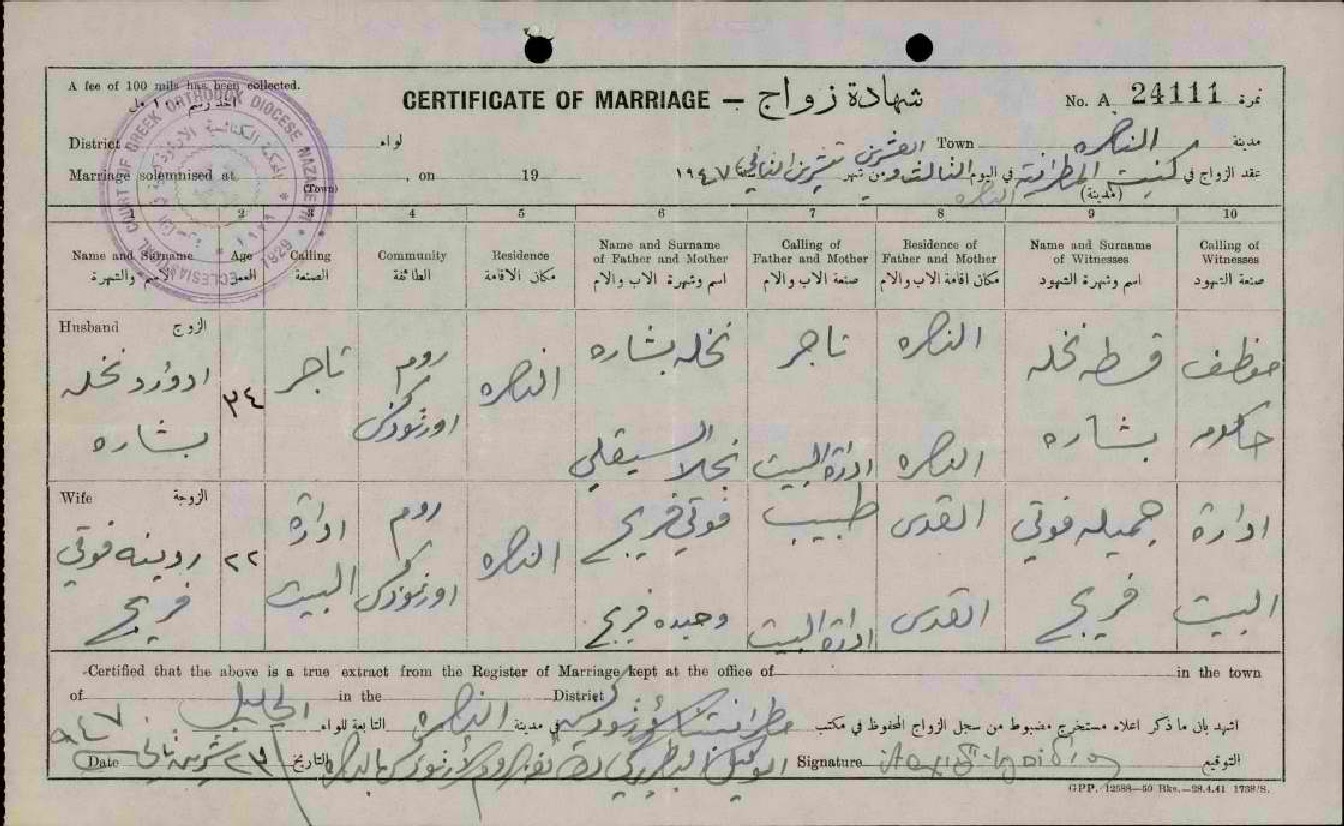 A fee of 100 mils has been collected.
CERTIFICATE OF MARRIAGE — شهادة زواج
No. A 24111 نمرة
District لواء Town الناصره مدينة
Marriage solemnised at (Town), on 19
عقد الزواج في كنيسة المطرانة (مدينة) الناصره في اليوم الثالث والعشرين من شهر تشرين الثاني ١٩٤٧
ECCLESIASTICAL COURT OF GREEK ORTHODOX DIOCESE NAZARETH 1929
1 2 3 4 5 6 7 8 9 10
Name and Surname Age Calling Community Residence Name and Surname of Father and Mother Calling of Father and Mother Residence of Father and Mother Name and Surname of Witnesses Calling of Witnesses
الاسم والشهرة العمر الصنعة الطائفة مكان الاقامة اسم وشهرة الاب والام صنعة الاب والام مكان اقامة الاب والام اسم وشهرة الشهود صنعة الشهود
Husband الزوج
ادورد نخله بشاره
٣٤
تاجر
روم اورثوذكس
الناصره
نخله بشاره
نجلا السيقلي
تاجر
ادارة البيت
الناصره
الناصره
قسطه نخله بشاره
موظف حكومه
Wife الزوجة
روينه فوتي فريج
٢٢
ادارة البيت
روم اورثوذكس
الناصره
فوتي فريج
وحيده فريج
طبيب
ادارة البيت
القدس
القدس
جميله فوتي فريج
ادارة البيت
Certified that the above is a true extract from the Register of Marriage kept at the office of in the town
of in the District
اشهد بان ما ذكر اعلاه مستخرج مضبوط من سجل الزواج المحفوظ في مكتب
في مدينة الناصره التابعة للواء الجليل
Date ٢٣ تشرين ثاني ٩٤٧ التاريخ
Signature التوقيع
GPP. 12588—50 Bks.—28.4.41 1738/S.